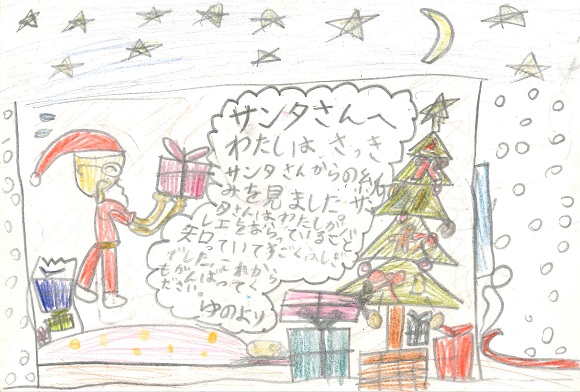 サンタさんへ
わたしは、さっき
サンタさんからの紙
みを見ました。サン
タさんはわたしが?バ
レエをならっていること
知っていてすごくふしぎ
でした。これから
もがんばってく
ださい。
ゆのより